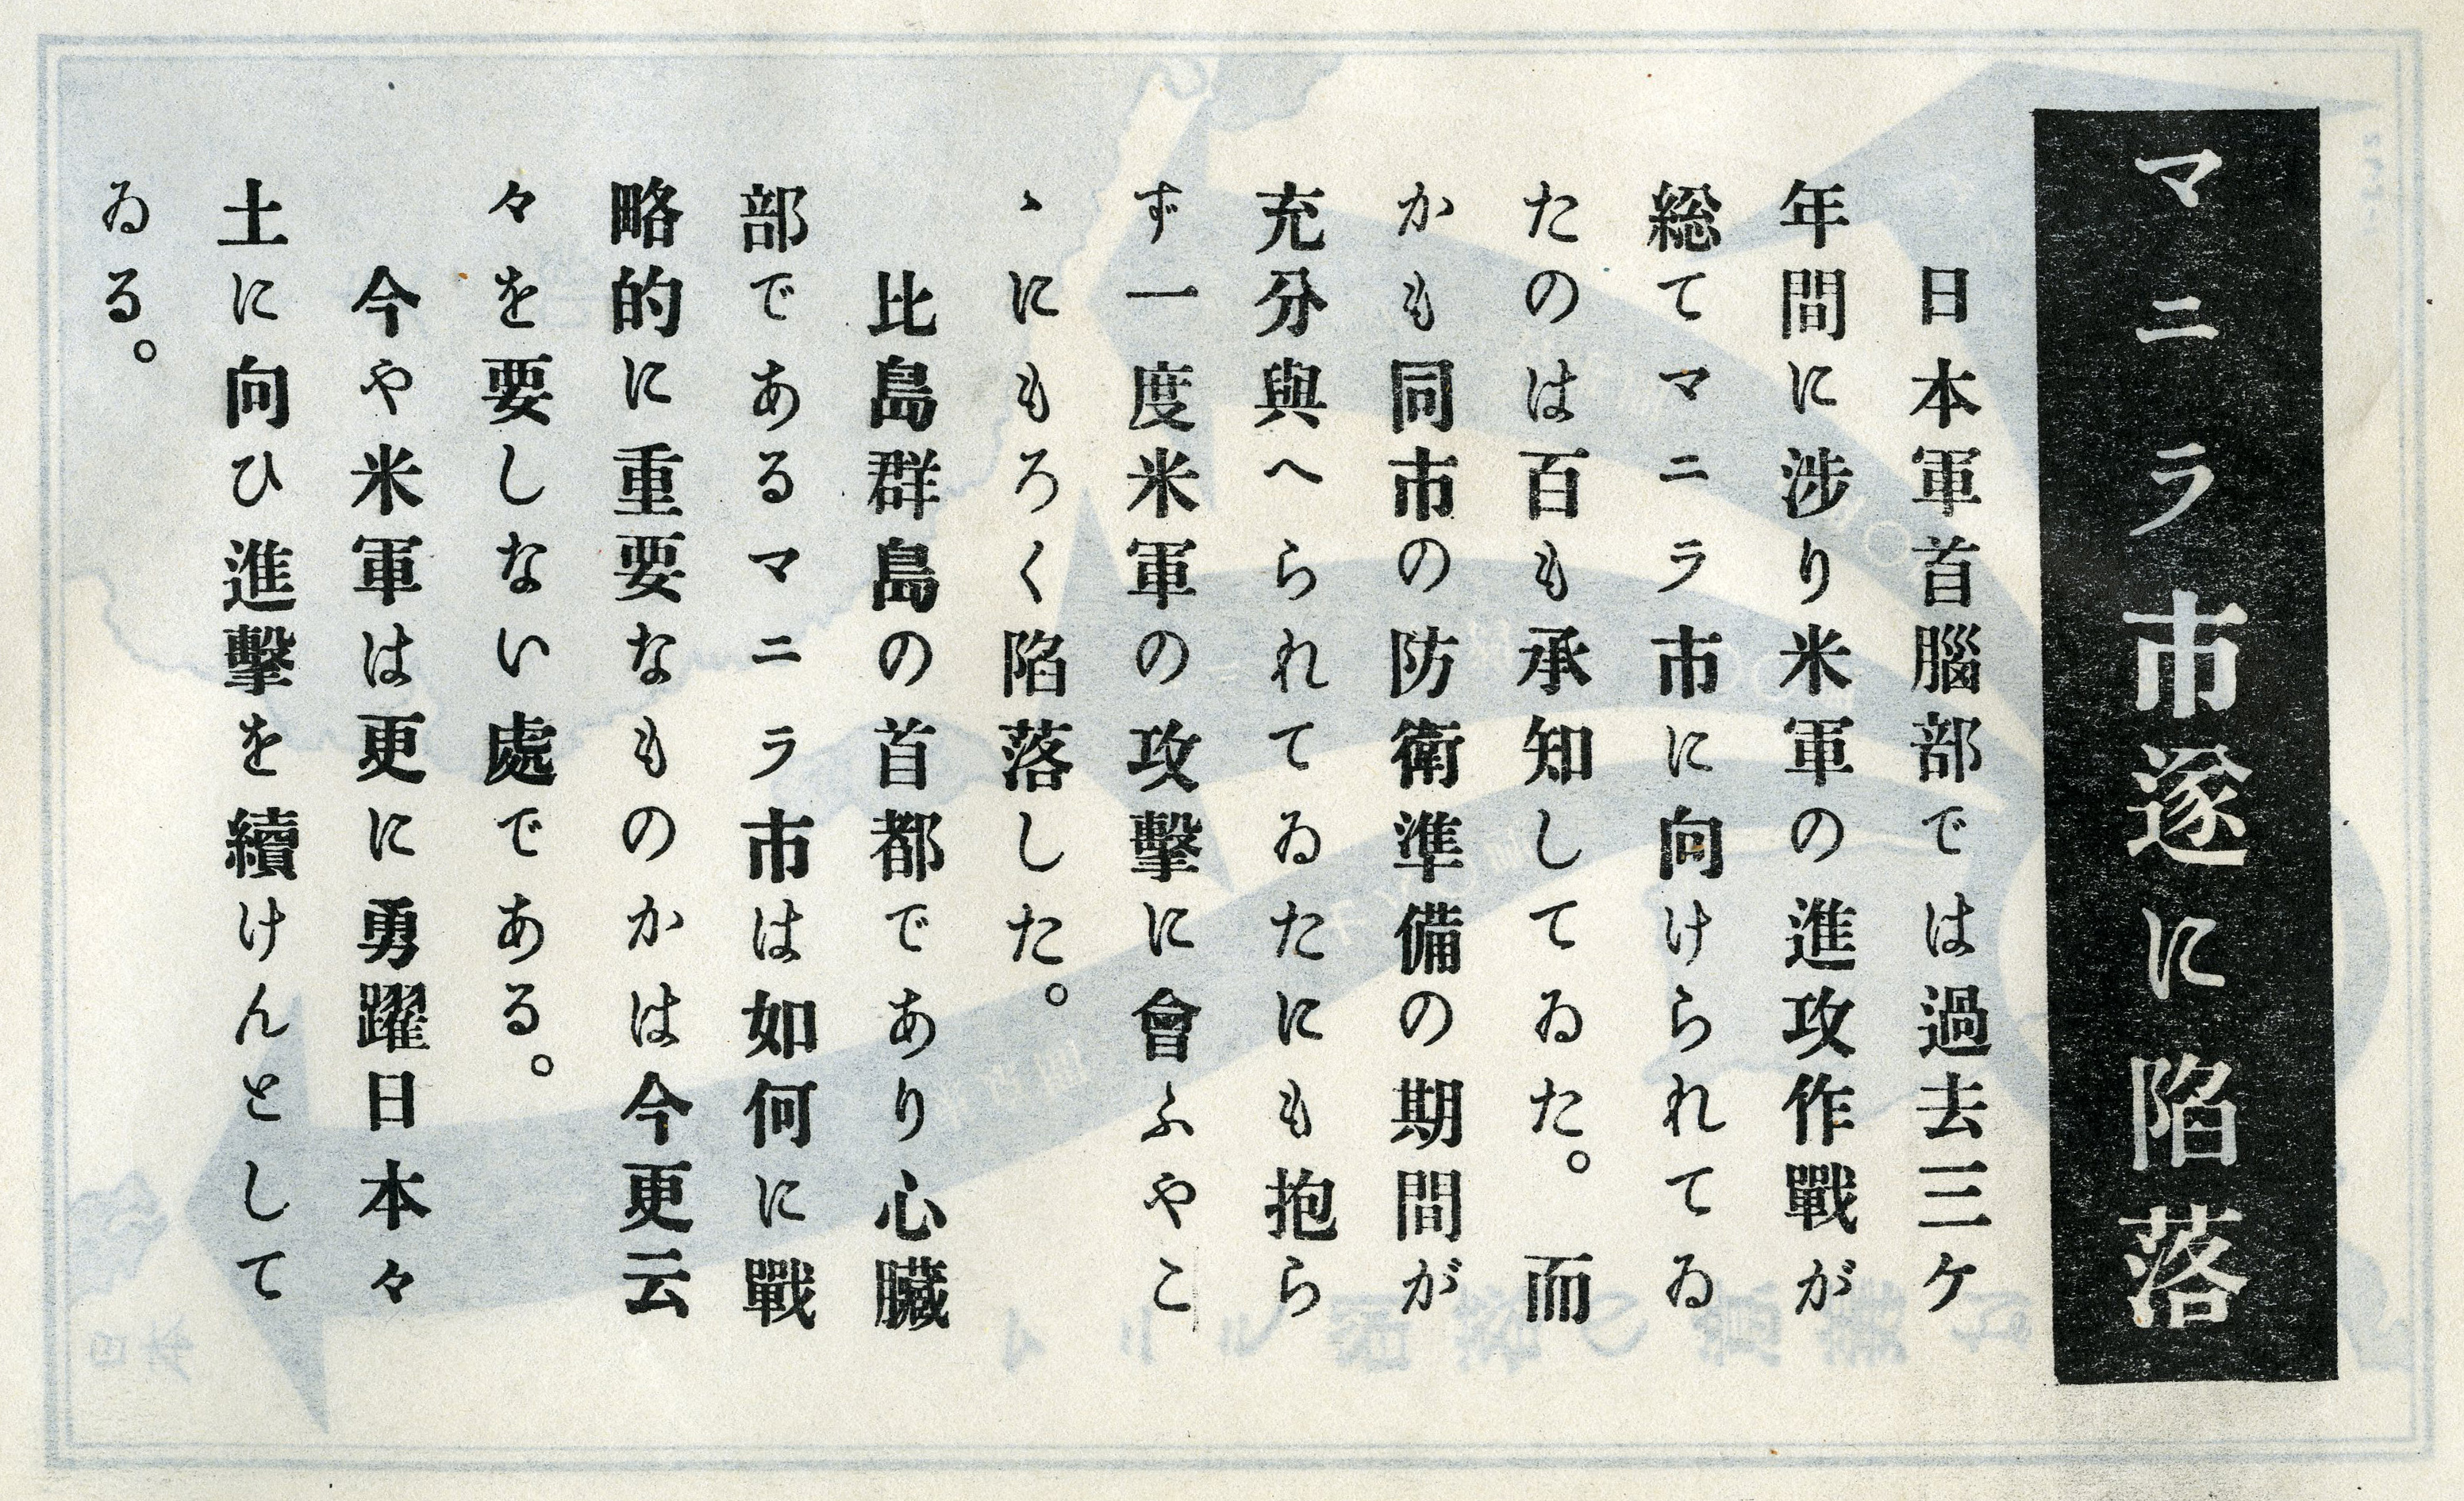 マニラ市遂に陥落
日本軍首腦部では過去三ケ
年間に涉り米軍の進攻作戰が
総てマニラ市に向けられてゐ
たのは百も承知してゐた。而
かも同市の防衛準備の期間が
充分與へられてゐたにも抱ら
ず一度米軍の攻擊に會ふやこ
ゝにもろく陥落した。
比島群島の首都であり心臓
部であるマニラ市は如何に戰
略的に重要なものかは今更云
々を要しない處である。
今や米軍は更に勇躍日本々
土に向ひ進擊を續けんとして
ゐる。